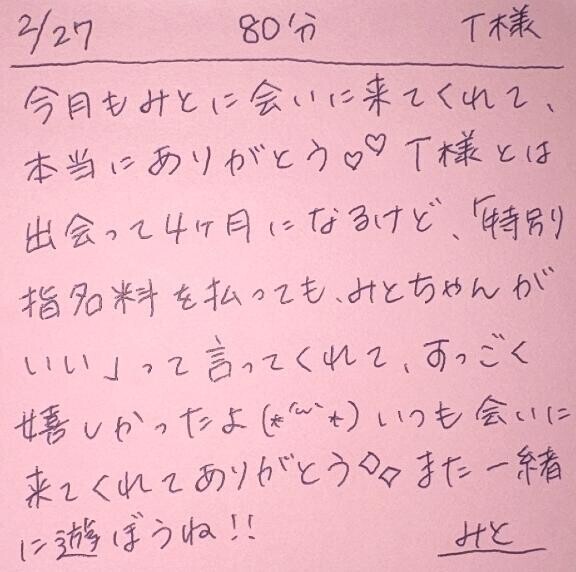 2/27 80分 T様
今月もみとに会いに来てくれて、
本当にありがとう♡♡ T様とは
出会って4ヶ月になるけど、「特別
指名料を払っても、みとちゃんが
いい」って言ってくれて、すっごく
嬉しかったよ(*´ω`*)いつも会いに
来てくれてありがとう◇◇また一緒
に遊ぼうね!!
みと